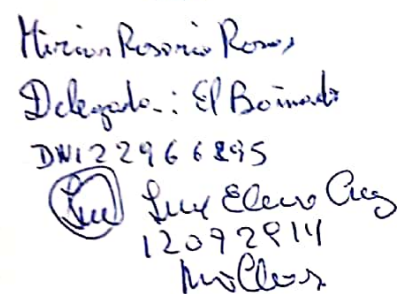 Mirian Rosario Rosas
Delegada.: El
DNI 22966895
Luz Elena Cruz
12092914